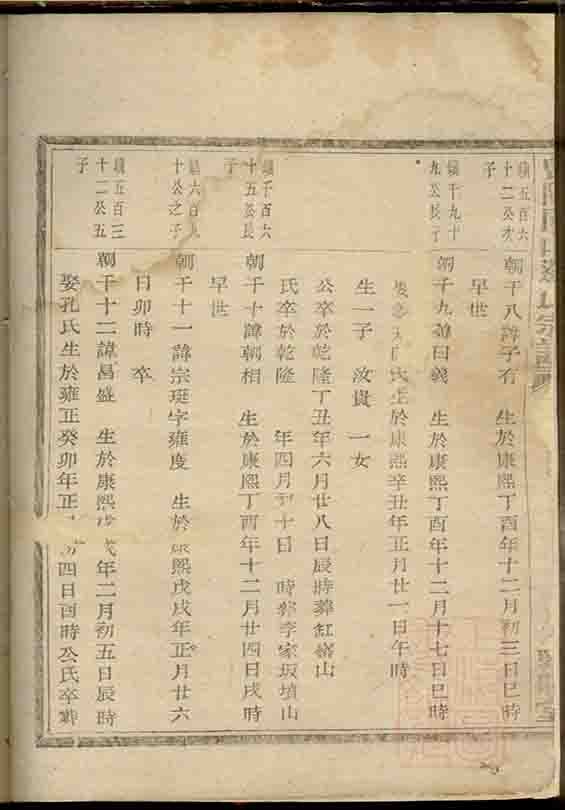 鎮五百六
十二公次
子
朝千八諱子有 生於康熙丁酉年十二月初三日巳時
早世
鎮千九十
九公長子
朝千九諱曰義 生於康熙丁酉年十二月十七日巳時
氏生於康熙辛丑年正月廿一日午時
生一子 汝貴 一女
公卒於乾隆丁丑年六月廿八日辰時葬紅 山
氏卒於乾隆 年四月 十日 時葬李家坂墳山
鎮千百六
十五公長
子
朝千十諱朝相 生於康熙丁酉年十二月廿四日戌時
早世
鎮六百
十公之子
朝千十一諱宗珽字雍度 生於康熙戊戌年正月廿六
日卯時 卒
鎮五百三
十二公五
子
朝千十二諱昌盛 生於康熙 戌年二月初五日辰時
娶孔氏生於雍正癸卯年正 四日酉時公氏卒葬